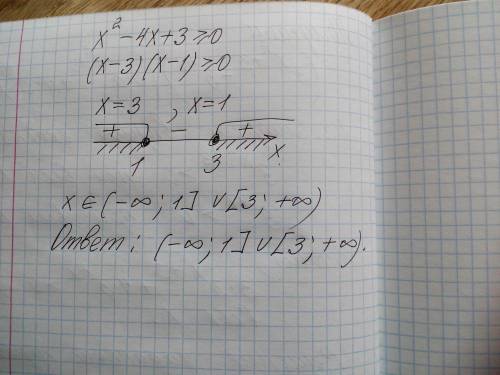 x² - 4x + 3 ≥ 0
(x-3)(x-1) ≥ 0
x = 3 , x = 1
+ - +
1 3 x
x ∈ (-∞; 1] ∪ [3; +∞)
Ответ: (-∞; 1] ∪ [3; +∞).